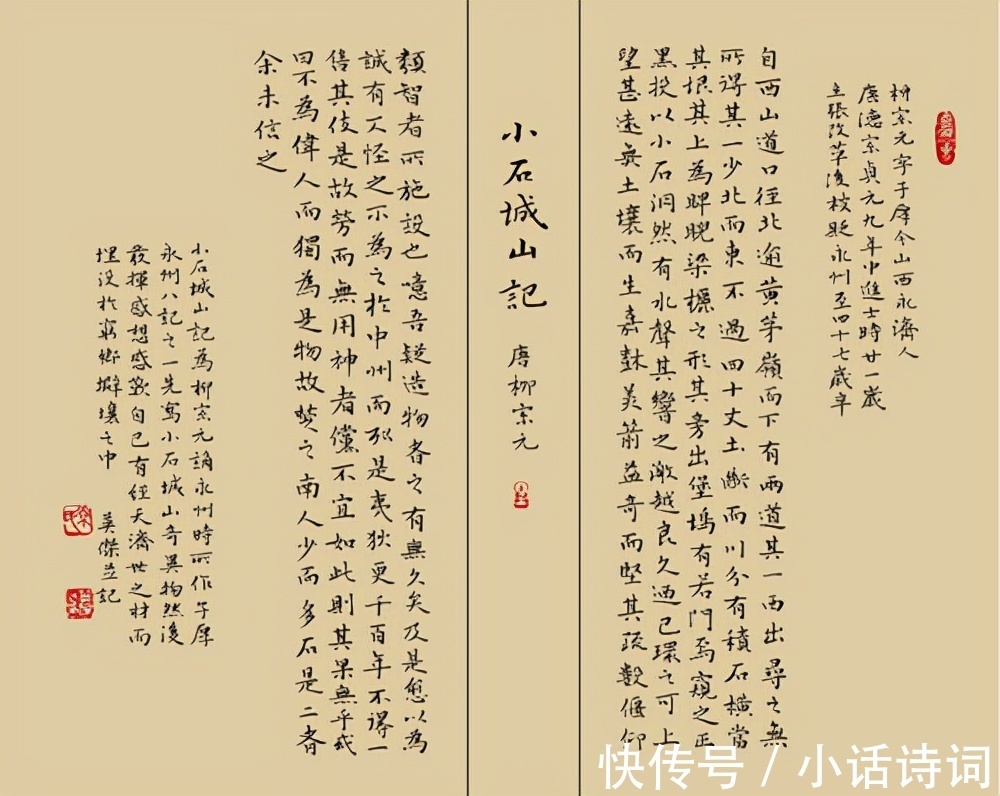 柳宗元字子厚今山西永濟人
唐德宗貞元九年中進士時廿一歲
主張改革後被貶永州至四十七歲卒
自西山道口徑北逾黄茅嶺而下有兩道其一西出尋之無
所得其一少北而東不過四十丈土斷而川分有積石橫當
其垠其上為睥睨梁欐之形其旁出堡塢有若門焉窺之正
黑投以小石洞然有水聲其響之激越良久迺已環之可上
望甚遠無土壤而生嘉樹美箭益奇而堅其疏數偃仰
小石城山記 唐柳宗元
類智者所施設也噫吾疑造物者之有無久矣及是愈以為
誠有又怪之不為之於中州而列是夷狄更千百年不得一
其伎是故勞而無用神者儻不宜如此則其果無乎或
曰不為偉人而獨為是物故楚之南人少而多石是二者
余未信之
小石城山記為柳宗元謫永州時所作子厚
永州八記之一先寫小石城山奇異物然後
發揮感想感歎自己有經天濟世之材而
埋没於窮鄉僻壤之中 英傑並記
快传号 / 小话诗词